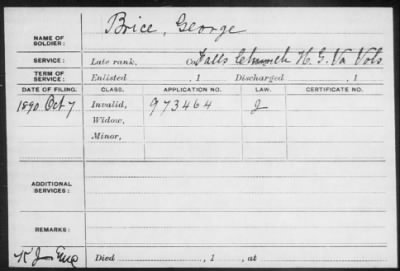 NAME OF SOLDIER: Brice, George
SERVICE: Late rank, Co Falls Church H. G. Va Vols
TERM OF SERVICE: Enlisted , 1 Discharged , 1
DATE OF FILING. CLASS. APPLICATION NO. LAW. CERTIFICATE NO.
1890 Oct 7 Invalid, 973464 J
Widow,
Minor,
ADDITIONAL SERVICES:
REMARKS:
Died , 1 , at